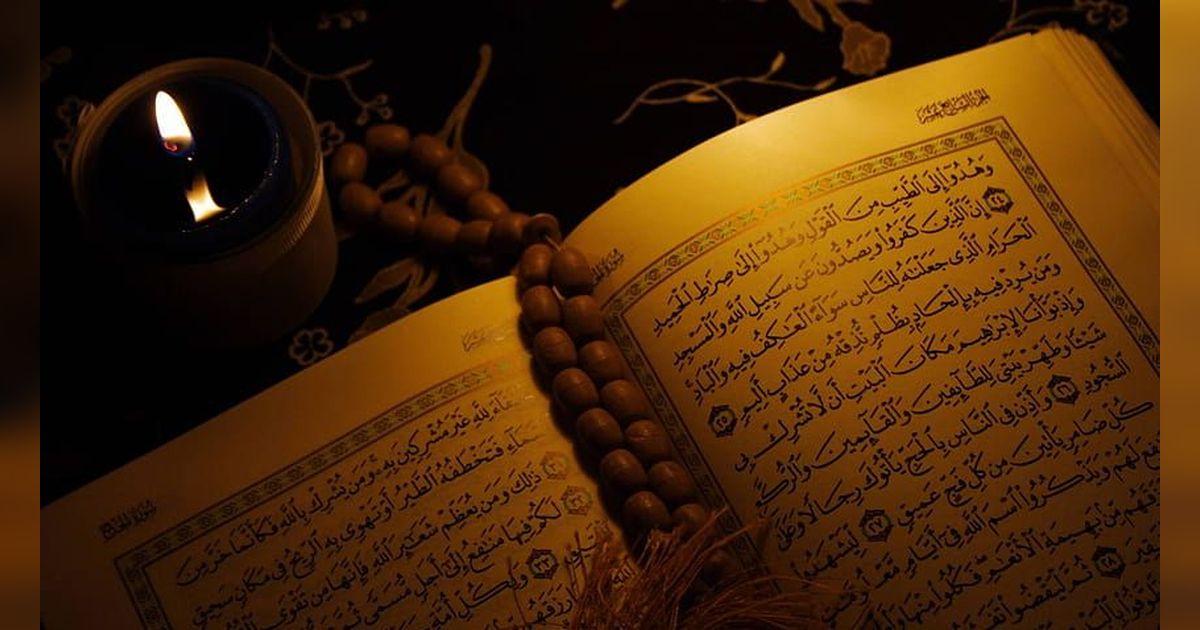 الجزء السابع عشر
وَهُدُوٓا۟ إِلَى ٱلطَّيِّبِ مِنَ ٱلْقَوْلِ وَهُدُوٓا۟ إِلَىٰ صِرَٰطِ ٱلْحَمِيدِ
٢٤ إِنَّ ٱلَّذِينَ كَفَرُوا۟ وَيَصُدُّونَ عَن سَبِيلِ ٱللَّهِ وَٱلْمَسْجِدِ
ٱلْحَرَامِ ٱلَّذِى جَعَلْنَٰهُ لِلنَّاسِ سَوَآءً ٱلْعَٰكِفُ فِيهِ وَٱلْبَادِ
وَمَن يُرِدْ فِيهِ بِإِلْحَادٍۭ بِظُلْمٍ نُّذِقْهُ مِنْ عَذَابٍ أَلِيمٍ ٢٥
وَإِذْ بَوَّأْنَا لِإِبْرَٰهِيمَ مَكَانَ ٱلْبَيْتِ أَن لَّا تُشْرِكْ بِى
شَيْـًٔا وَطَهِّرْ بَيْتِىَ لِلطَّآئِفِينَ وَٱلْقَآئِمِينَ وَٱلرُّكَّعِ
ٱلسُّجُودِ ٢٦ وَأَذِّن فِى ٱلنَّاسِ بِٱلْحَجِّ يَأْتُوكَ رِجَالًا وَعَلَىٰ
كُلِّ ضَامِرٍ يَأْتِينَ مِن كُلِّ فَجٍّ عَمِيقٍ ٢٧ لِّيَشْهَدُوا۟
لَهُمْ وَيَذْكُرُوا۟ ٱسْمَ ٱللَّهِ فِىٓ أَيَّامٍ
مِّنۢ بَهِيمَةِ ٱلْأَنْعَٰمِ فَكُلُوا۟ مِنْهَا
٢٨ ثُمَّ لْيَقْضُوا۟
سُورَةُ الحَجّ
لِلَّهِ غَيْرَ مُشْرِكِينَ بِهِۦ وَمَن يُشْرِكْ بِٱللَّهِ فَكَأَنَّمَا خَرَّ مِنَ
فَتَخْطَفُهُ ٱلطَّيْرُ أَوْ تَهْوِى بِهِ ٱلرِّيحُ فِى مَكَانٍ سَحِيقٍ
٣١ ذَٰلِكَ وَمَن يُعَظِّمْ شَعَٰٓئِرَ ٱللَّهِ فَإِنَّهَا مِن تَقْوَى
٣٢ لَكُمْ فِيهَا مَنَٰفِعُ إِلَىٰٓ أَجَلٍ مُّسَمًّى
٣٣ وَلِكُلِّ أُمَّةٍ